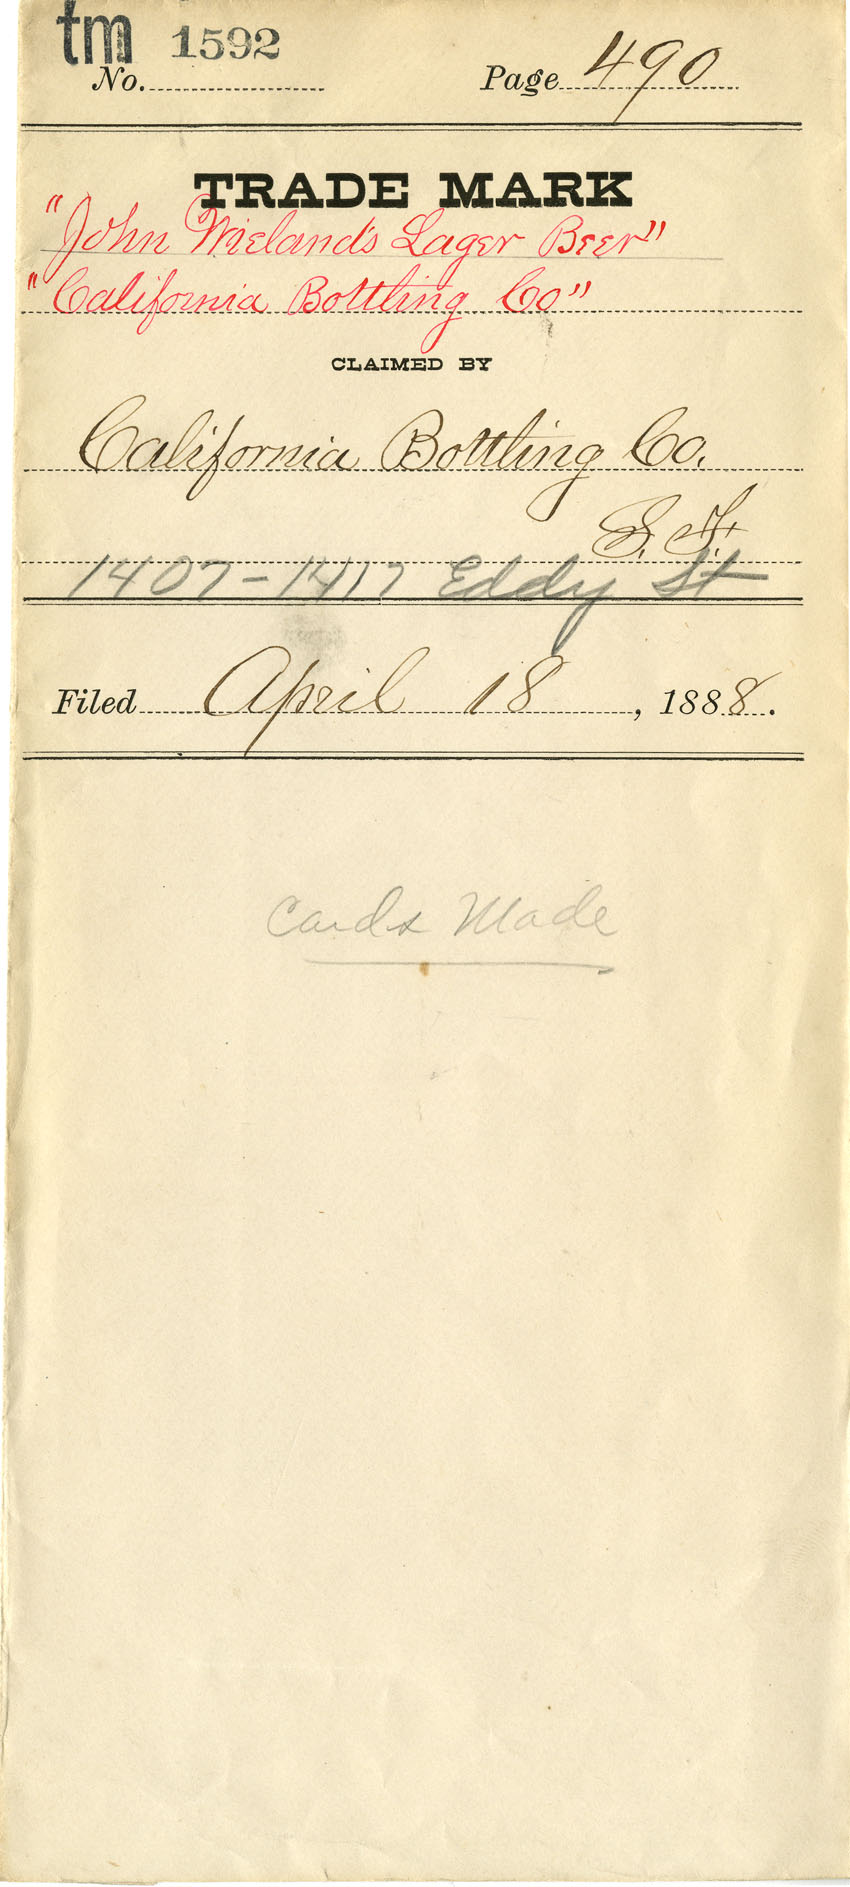 tm 1592
No. Page 490
TRADE MARK
"John Wieland's Lager Beer"
"California Bottling Co"
CLAIMED BY
California Bottling Co.
S. F.
1407-1417 Eddy St
Filed April 18, 1888.
Cards Made